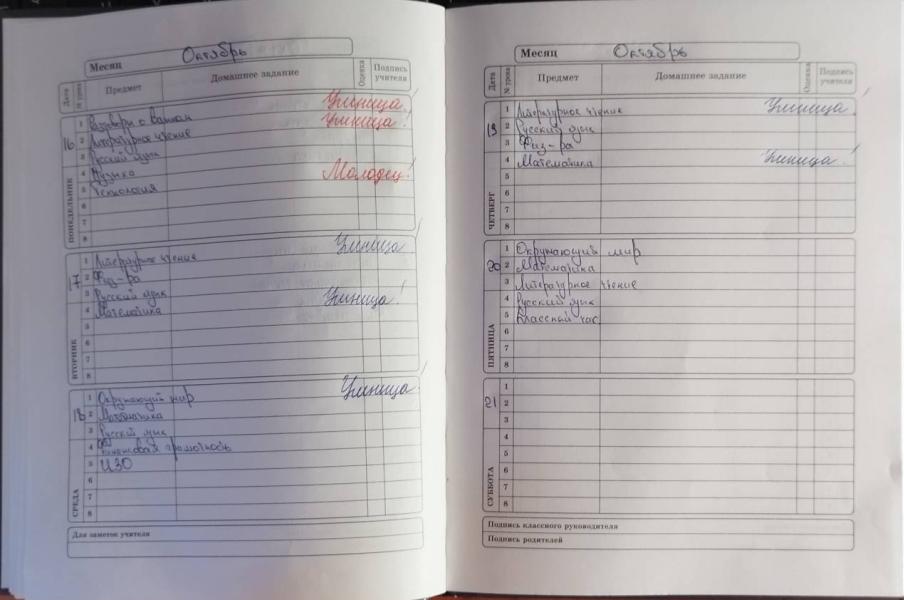 Месяц Октябрь
Дата № урока Предмет Домашнее задание Оценка Подпись учителя
ПОНЕДЕЛЬНИК 16
1 Разговоры о важном Умница!
2 Литературное чтение Умница!
3 Русский язык
4 Музыка
5 Технология Молодец!
6
7
8
ВТОРНИК 17
1 Литературное чтение Умница!
2 Физ-ра
3 Русский язык
4 Математика Умница!
5
6
7
8
СРЕДА 18
1 Окружающий мир Умница!
2 Математика
3 Русский язык
4 грамотность
5 ИЗО
6
7
8
Для заметок учителя
Месяц Октябрь
Дата № урока Предмет Домашнее задание Оценка Подпись учителя
ЧЕТВЕРГ 19
1 Литературное чтение Умница!
2 Русский язык
3 Физ-ра
4 Математика Умница!
5
6
7
8
ПЯТНИЦА 20
1 Окружающий мир
2 Математика
3 Литературное чтение
4 Русский язык
5 Классный час
6
7
8
СУББОТА 21
1
2
3
4
5
6
7
8
Подпись классного руководителя
Подпись родителей